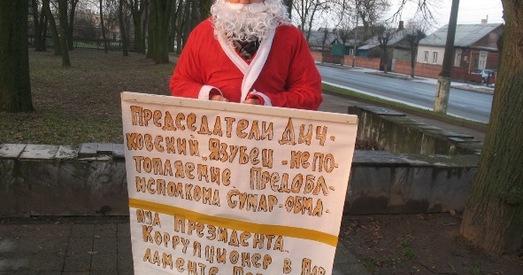 ПРЕДСЕДАТЕЛИ ДИЧ-
КОВСКИЙ, ЯЗУБЕЦ - НЕПО-
ТОПЛЯЕМЫЕ. ПРЕДОБЛ-
ИСПОЛКОМА СУМАР - ОБМА-
НУЛ ПРЕЗИДЕНТА.
КОРРУПЦИОНЕР В ПАР
ЛАМЕНТЕ